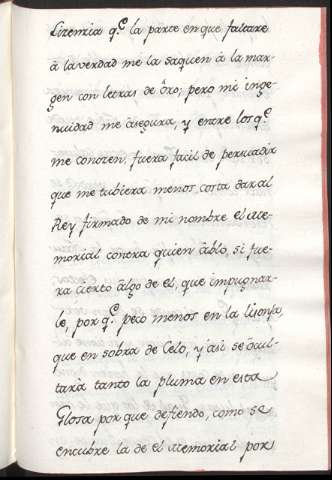 Lizemia q.e la parte en que faltare
â la verdad me la saquen â la mar-
gen con letras de ôro; pero mi inge-
nuidad me âsegura, y entre los q.e
me conozen, fuera facil de persuadir
que me tubiera menos costa dar al
Rey firmado de mi nombre el Me-
morial contra quien âblo, si fue-
ra cierto âlgo de el, que impugnar-
le, por q.e peco menos en la lisonja,
que en sobra de Celo, y âsi se ôcul-
tara tanto la pluma en esta
Glosa por que defiendo, como se
encubre la de el Memorial por